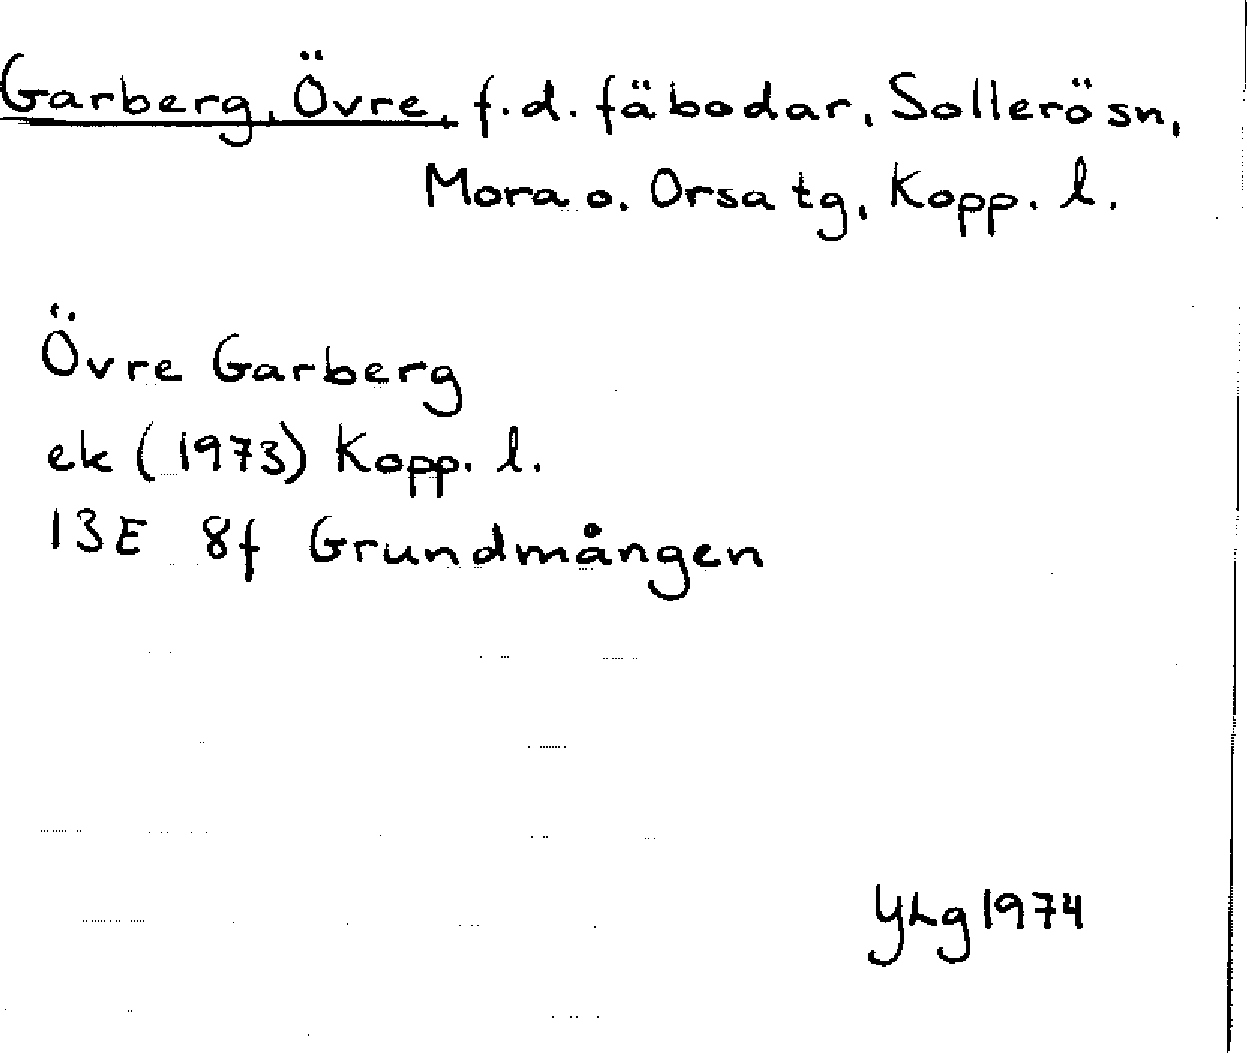 Garberg, Övre, f.d. fäbodar, Sollerö sn,
Mora o. Orsa tg, Kopp. l.
Övre Garberg
ek (1973) Kopp. l.
13E 8f Grundmången
YLg 1974